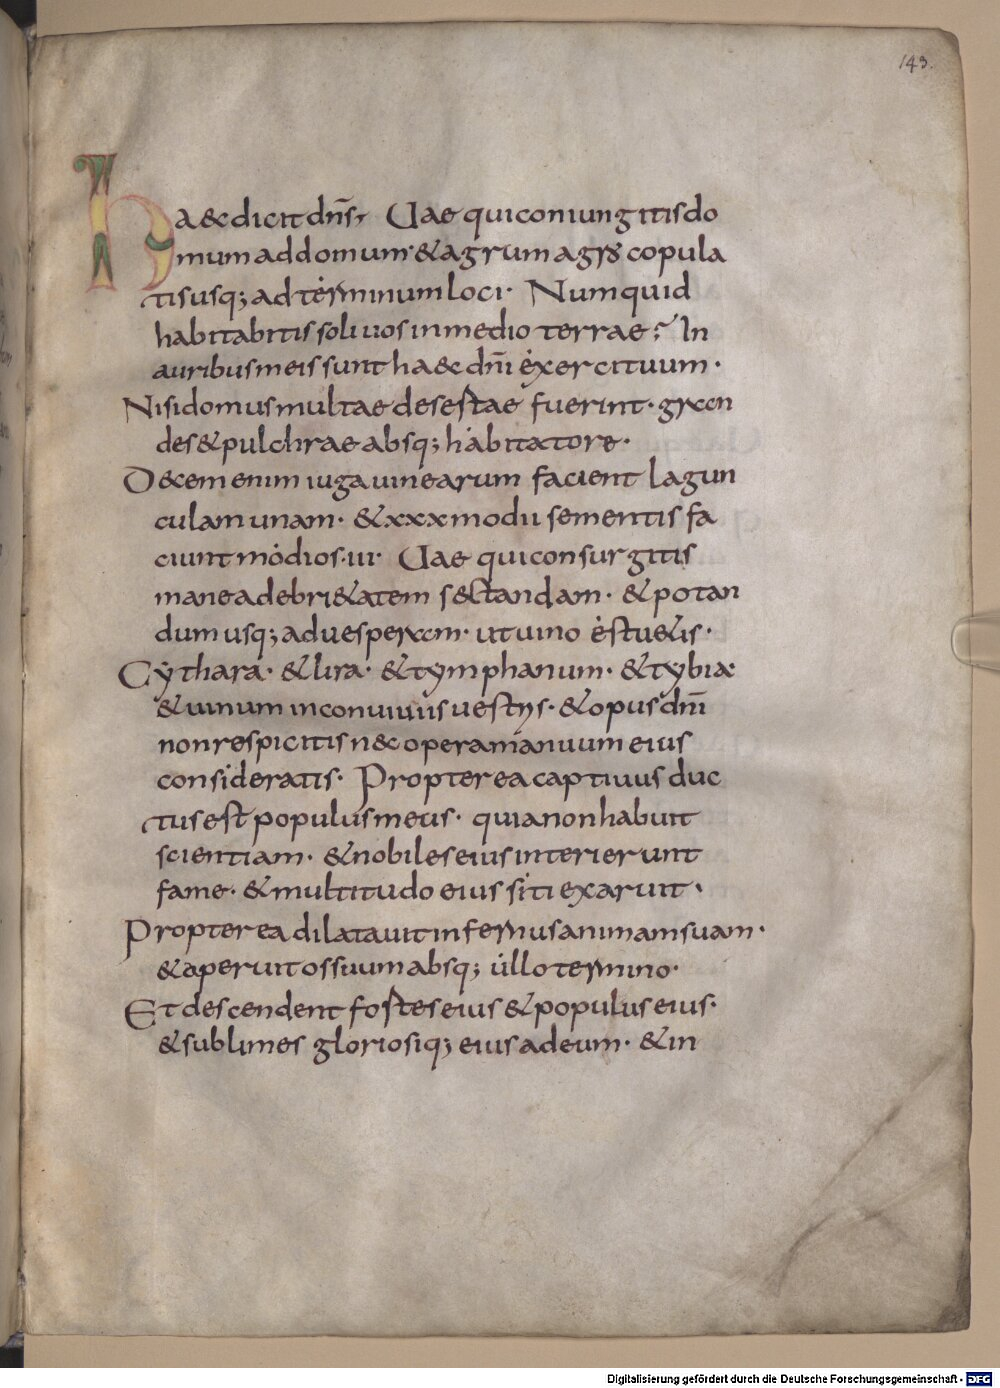 143.
Ha&c dicit dn̄s, Uae qui coniungitis do
mum ad domum· & agrum agro copula
tis usq; ad terminum loci· Numquid
habitabitis soli uos in medio terrae? In
auribus meis sunt ha&c dn̄i exercituum·
Nisi domus multae desestae fuerint· gran
des & pulchrae absq; habitatore·
D&cem enim iuga uinearum facient lagun
culam unam· & xxx modii sementis fa
ciunt modios·iii· Uae qui consurgitis
mane ad ebri&atem s&ctandam· & potan
dum usq; ad uesperam· ut uino estu&is·
Cythara· & lira· & tymphanum· & tybia·
& uinum in conuiuiis uestrys· & opus dn̄i
non respicitis n&c opera manuum eius
consideratis· Propterea captiuus duc
tus est populus meus· quia non habuit
scientiam· & nobiles eius interierunt
fame· & multitudo eius siti exaruit·
Propterea dilatauit infernus animam suam·
& aperuit os suum absq; ullo termino·
Et descendent fostes eius & populus eius·
& sublimes gloriosiq; eius ad eum· & in
Digitalisierung gefördert durch die Deutsche Forschungsgemeinschaft - DFG